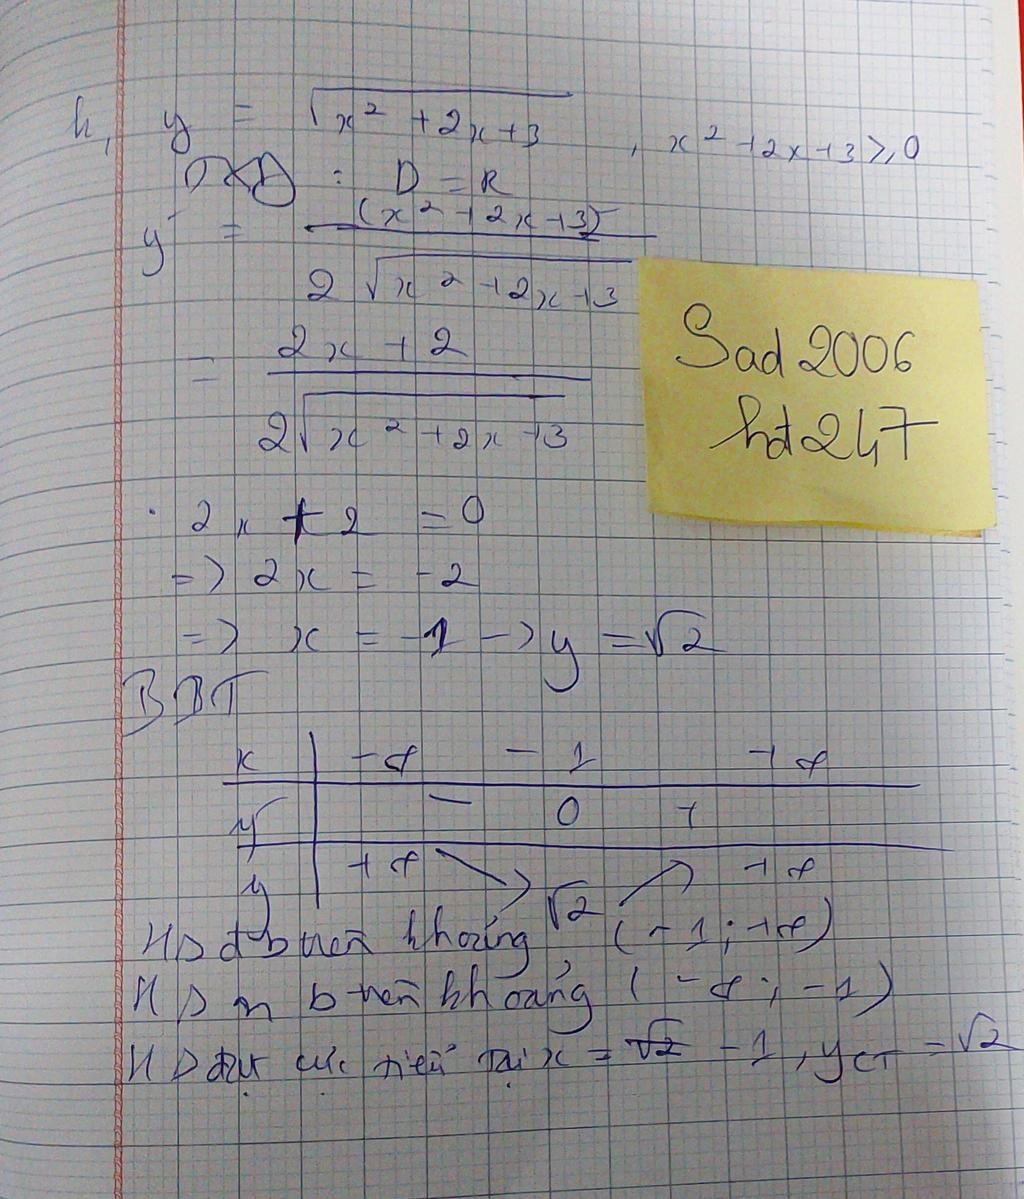 h, y = √(x² + 2x + 3) , x² + 2x + 3 ≥ 0
TXĐ : D = R
y' = (x² + 2x + 3)' / 2√(x² + 2x + 3)
= 2x + 2 / 2√(x² + 2x + 3)
Sad 2006
hd 247
. 2x + 2 = 0
=> 2x = -2
=> x = -1 -> y = √2
BBT
x | -∞ -1 +∞
y' | - 0 +
y | +∞ ↘ √2 ↗ +∞
HS đb trên khoảng (-1; +∞)
HS nb trên khoảng (-∞; -1)
HS đạt cực tiểu tại x = √2 -1, yCT = √2